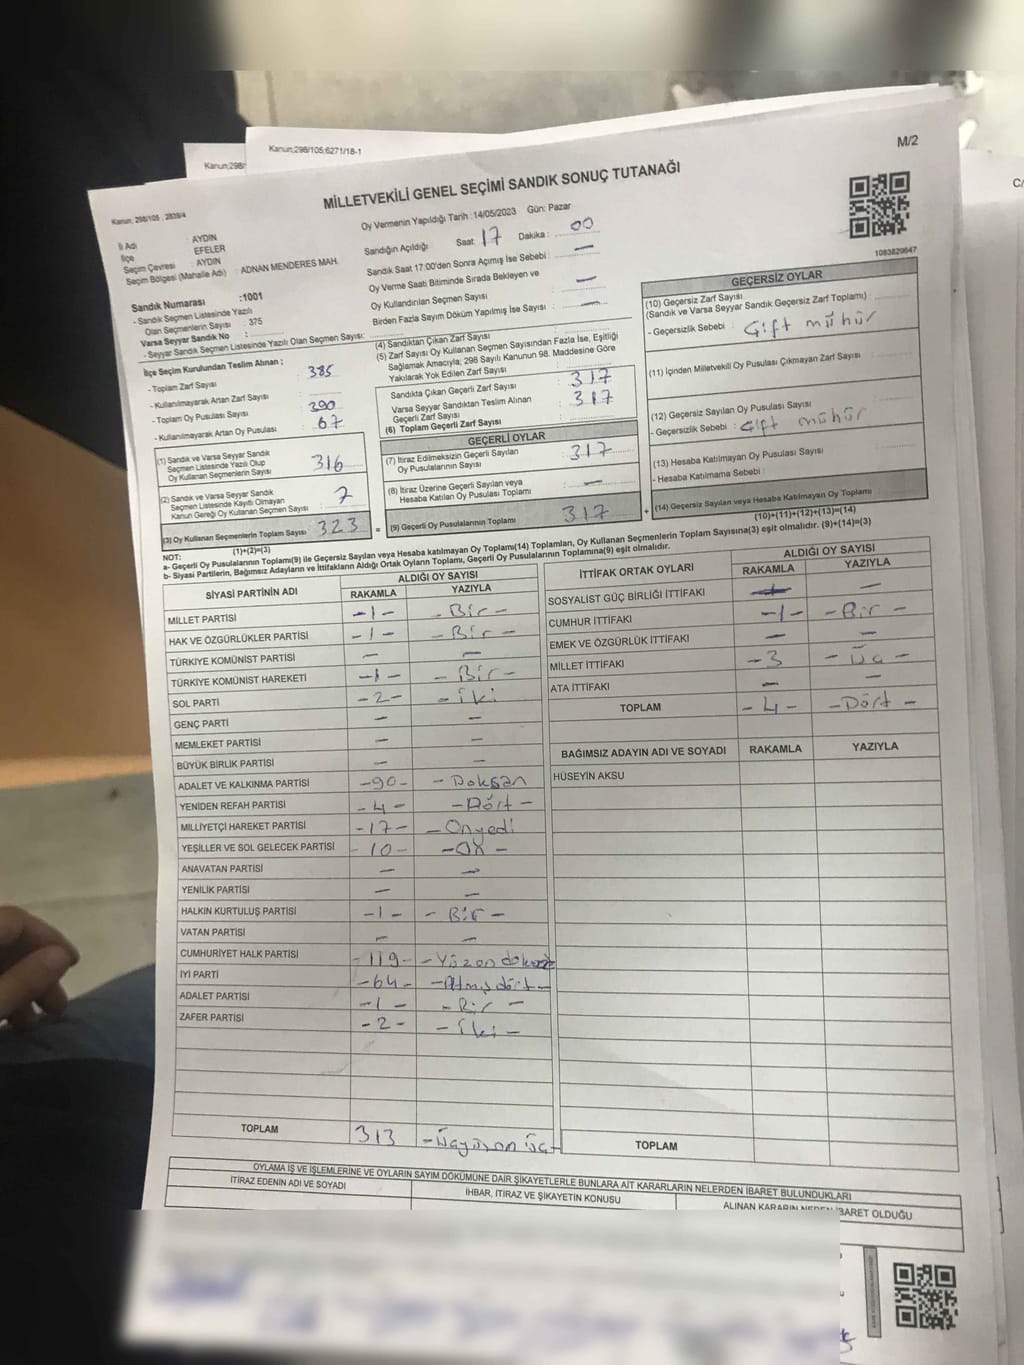 Kanun;298/105;6271/18-1
Kanun;298/
M/2
C/
Kanun; 298/105 ; 2839/4
MİLLETVEKİLİ GENEL SEÇİMİ SANDIK SONUÇ TUTANAĞI
1083829647
İl Adı : AYDIN
İlçe : EFELER
Seçim Çevresi : AYDIN
Seçim Bölgesi (Mahalle Adı) : ADNAN MENDERES MAH.
Sandık Numarası :1001
- Sandık Seçmen Listesinde Yazılı
Olan Seçmenlerin Sayısı : 375
Varsa Seyyar Sandık No :
- Seyyar Sandık Seçmen Listesinde Yazılı Olan Seçmen Sayısı:
İlçe Seçim Kurulundan Teslim Alınan ;
- Toplam Zarf Sayısı : 385
- Kullanılmayarak Artan Zarf Sayısı :
- Toplam Oy Pusulası Sayısı : 390
- Kullanılmayarak Artan Oy Pusulası : 67
(1) Sandık ve Varsa Seyyar Sandık
Seçmen Listesinde Yazılı Olup
Oy Kullanan Seçmenlerin Sayısı : 316
(2) Sandık ve Varsa Seyyar Sandık
Seçmen Listesinde Kayıtlı Olmayan
Kanun Gereği Oy Kullanan Seçmen Sayısı : 7
(3) Oy Kullanan Seçmenlerin Toplam Sayısı : 323 =
(1)+(2)=(3)
Oy Vermenin Yapıldığı Tarih :14/05/2023 Gün: Pazar
Sandığın Açıldığı Saat : 17 Dakika : 00
Sandık Saat 17:00'den Sonra Açımış İse Sebebi : —
Oy Verme Saati Bitiminde Sırada Bekleyen ve
Oy Kullandırılan Seçmen Sayısı : —
Birden Fazla Sayım Döküm Yapılmış İse Sayısı : —
(4) Sandıktan Çıkan Zarf Sayısı :
(5) Zarf Sayısı Oy Kullanan Seçmen Sayısından Fazla İse, Eşitliği
Sağlamak Amacıyla; 298 Sayılı Kanunun 98. Maddesine Göre
Yakılarak Yok Edilen Zarf Sayısı :
Sandıkta Çıkan Geçerli Zarf Sayısı : 317
Varsa Seyyar Sandıktan Teslim Alınan
Geçerli Zarf Sayısı : 317
(6) Toplam Geçerli Zarf Sayısı :
GEÇERLİ OYLAR
(7) İtiraz Edilmeksizin Geçerli Sayılan
Oy Pusulalarının Sayısı : 317
(8) İtiraz Üzerine Geçerli Sayılan veya
Hesaba Katılan Oy Pusulası Toplamı : —
(9) Geçerli Oy Pusulalarının Toplamı : 317 +
GEÇERSİZ OYLAR
(10) Geçersiz Zarf Sayısı
(Sandık ve Varsa Seyyar Sandık Geçersiz Zarf Toplamı) :
- Geçersizlik Sebebi : Çift mühür
(11) İçinden Milletvekili Oy Pusulası Çıkmayan Zarf Sayısı :
(12) Geçersiz Sayılan Oy Pusulası Sayısı :
- Geçersizlik Sebebi : Çift mühür
(13) Hesaba Katılmayan Oy Pusulası Sayısı :
- Hesaba Katılmama Sebebi :
(14) Geçersiz Sayılan veya Hesaba Katılmayan Oy Toplamı :
(10)+(11)+(12)+(13)=(14)
NOT:
a- Geçerli Oy Pusulalarının Toplamı(9) ile Geçersiz Sayılan veya Hesaba katılmayan Oy Toplamı(14) Toplamları, Oy Kullanan Seçmenlerin Toplam Sayısına(3) eşit olmalıdır. (9)+(14)=(3)
b- Siyasi Partilerin, Bağımsız Adayların ve İttifakların Aldığı Ortak Oyların Toplamı, Geçerli Oy Pusulalarının Toplamına(9) eşit olmalıdır.
SİYASİ PARTİNİN ADI ALDIĞI OY SAYISI
RAKAMLA YAZIYLA
MİLLET PARTİSİ -1- -Bir-
HAK VE ÖZGÜRLÜKLER PARTİSİ -1- -Bir-
TÜRKİYE KOMÜNİST PARTİSİ — —
TÜRKİYE KOMÜNİST HAREKETİ -1- -Bir-
SOL PARTİ -2- -İki
GENÇ PARTİ — —
MEMLEKET PARTİSİ — —
BÜYÜK BİRLİK PARTİSİ — —
ADALET VE KALKINMA PARTİSİ -90- -Doksan
YENİDEN REFAH PARTİSİ -4- -Dört-
MİLLİYETÇİ HAREKET PARTİSİ -17- -Onyedi
YEŞİLLER VE SOL GELECEK PARTİSİ 10- -On-
ANAVATAN PARTİSİ — —
YENİLİK PARTİSİ — —
HALKIN KURTULUŞ PARTİSİ -1- -Bir-
VATAN PARTİSİ — —
CUMHURİYET HALK PARTİSİ -119- -Yüzondokuz
İYİ PARTİ -64- -Atmış dört-
ADALET PARTİSİ -1- -Bir-
ZAFER PARTİSİ -2- -İki-
TOPLAM 313 -Üçyüzon üç-
İTTİFAK ORTAK OYLARI ALDIĞI OY SAYISI
RAKAMLA YAZIYLA
SOSYALİST GÜÇ BİRLİĞİ İTTİFAKI —
CUMHUR İTTİFAKI -1- -Bir-
EMEK VE ÖZGÜRLÜK İTTİFAKI — —
MİLLET İTTİFAKI -3 -Üç-
ATA İTTİFAKI — —
TOPLAM -4- -Dört-
BAĞIMSIZ ADAYIN ADI VE SOYADI RAKAMLA YAZIYLA
HÜSEYİN AKSU
TOPLAM
OYLAMA İŞ VE İŞLEMLERİNE VE OYLARIN SAYIM DÖKÜMÜNE DAİR ŞİKAYETLERLE BUNLARA AİT KARARLARIN NELERDEN İBARET BULUNDUKLARI
İTİRAZ EDENİN ADI VE SOYADI İHBAR, İTİRAZ VE ŞİKAYETİN KONUSU ALINAN KARARIN NEDEN İBARET OLDUĞU